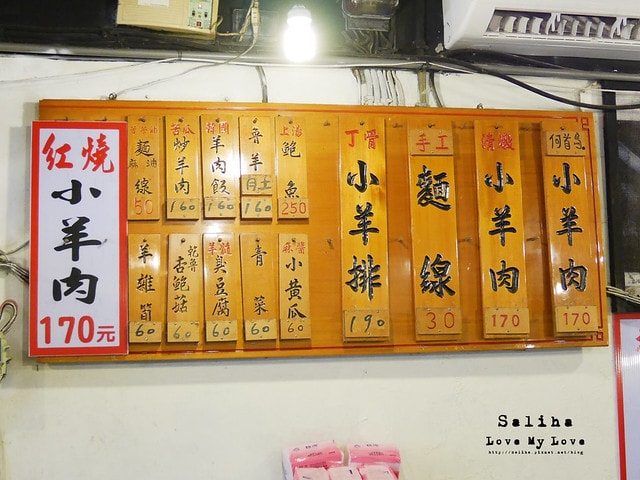 紅燒
小羊肉
170元
何首烏
小羊肉
170
清燉
小羊肉
170
手工
麵線
30
丁骨
小羊排
190
上湯
鮑魚
250
魯羊
160
羊肉飯
160
苦瓜
炒羊肉
160
麻油
麵線
50
麻醬
小黃瓜
60
青菜
60
羊髓
臭豆腐
60
乾魯
杏鮑菇
60
羊雜筍
60
Saliha
Love My Love
http://saliha.pixnet.net/blog